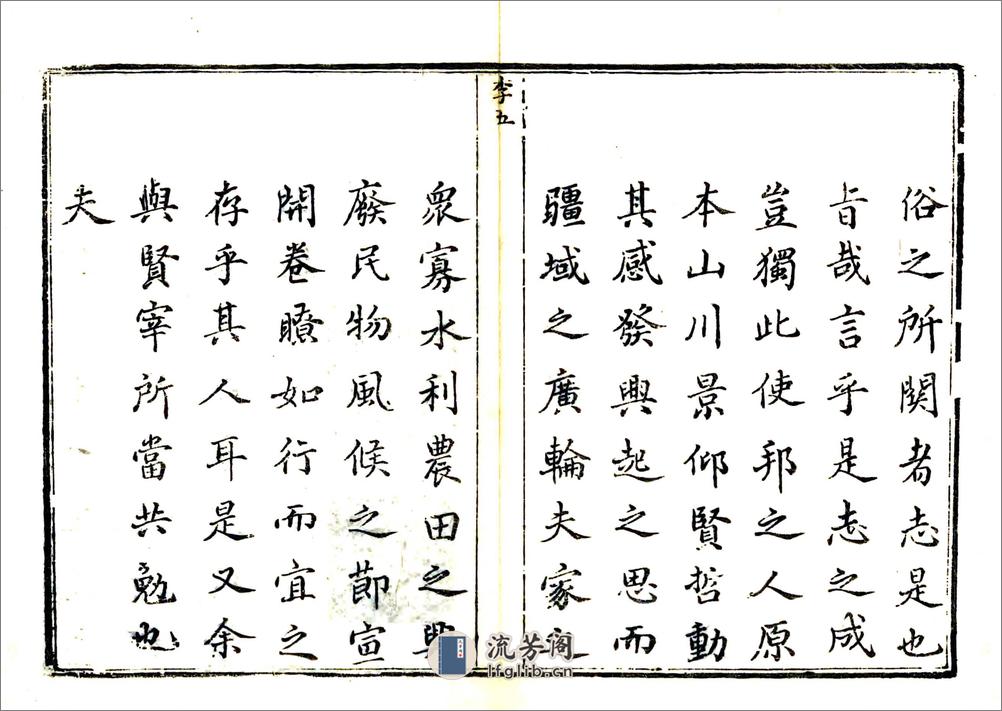 俗之所関者志是也
旨哉言乎是志之成
豈獨此使邦之人原
本山川景仰賢哲動
其感發興起之思而
疆域之廣輪夫家之
李五
衆寡水利農田之興
廢民物風候之節宣
開卷瞭如行而宜之
存乎其人耳是又余
與賢宰所當共勉也
夫
流芳阁
lfglib.cn